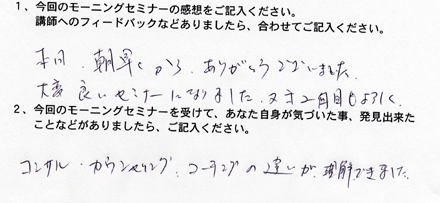 1、今回のモーニングセミナーの感想をご記入ください。
講師へのフィードバックなどありましたら、合わせてご記入ください。
本日、朝早くから、ありがとうございました。
大変良いセミナーになりました。又才2回目もよろしく。
2、今回のモーニングセミナーを受けて、あなた自身が気づいた事、発見出来た
ことなどがありましたら、ご記入ください。
コンサル・カウンセリング、コーチングの違いが理解できました。